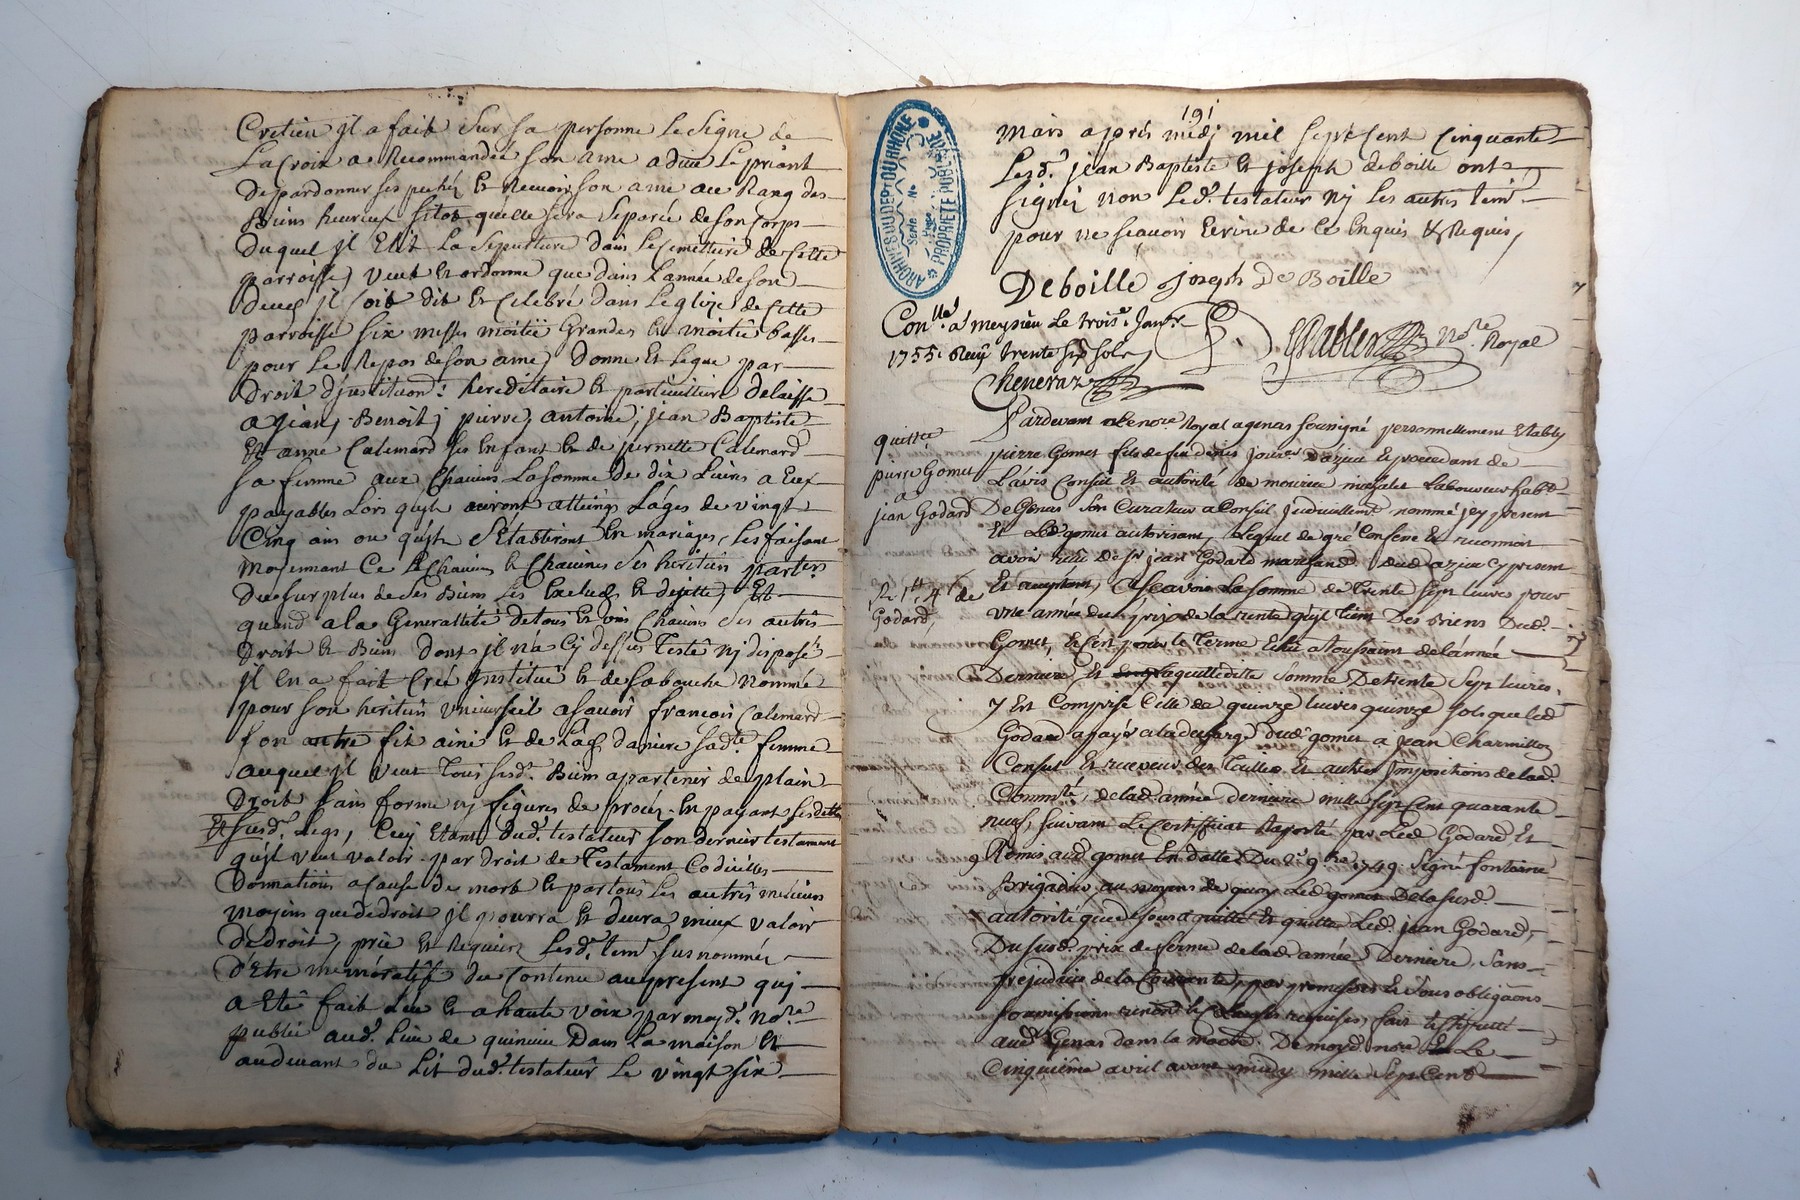 Cretien jl a fait Sur sa personne le Signe de
La Croix a Recommandée son ame a dieu Le priant
de pardonner ses pechéz Et Recevoir son ame au Rang des
Biens heureux sitot quelle sera Separée de son Corps
Duquel jl Elit La Sepulture dans le Cimettiere de Cette
parroisse, veut Et ordonne que dans Lannée de son
deces jl soit dit Et Celebré dans Leglize de Cette
parroisse six messes moitiê Grandes Et moitiê basses
pour Le Repos de son ame, donne Et Legue par
Droit d'jnstitution hereditaire Et particuilliere delaisse
a jean, Benoit, pierre, antoine, jean Baptiste
Et anne Calemard ses Enfant Et de pernette Calemard
sa femme aux Chacuns La somme de dix Livres a Eux
payables Lors quils auront atteings L'ages de vingt
Cinq ans ou quils s'Etabliront En mariages, Les faisant
moyennant Ce Chacuns Et Chacunes ses heritiers parters
Du surplus de ses Biens Les Exclues Et dejette, Et
quand a la Generallité de tous Et uns Chacuns ses autres
Droits Et Biens dont jl n'a Cy dessus Testê nj disposés
jl En a fait Créé jnstitué Et de sa bouche Nommé
pour son heritier vniversel a savoir françois Calemard
son autre fis ainé Et de Lad. daniere sad.te femme
auquel jl veut Tous sesd. Biens apartenir de plain
Droit sans forme nj figures de procés En payant ses dettes
Et susd. Legs, Cecy Etant dud. testateur son dernier testament
qu'jl veut valoir par droit de Testament Codicilles
Donnations a cause de mort Et par tous Les autres meilleurs
moyens que de droit jl pourra Et devra mieux valoir
De droit, prie Et Requier Lesd. tem. sus nommés
D'Etre memóratif du Contenu au present quj
a Etê fait Leu Et a haute voix par moyd. No.re
publié aud. Lieu de quincieu Dans La maison Et
au devant du Lit dud. testateur Le vingt six
191
mars aprés midj mil sept Cent Cinquante
Lesd. jean Baptiste Et joseph deboille ont
signéz non Led. testateur Nj Les autres tem.
pour ne sçavoir Ecrire de Ce Enquis Et Requis,
Deboille Joseph De Boille
Con.llé a meysieu Le trois.e Janv.r
1755. Reçu trente six sols
Cheneraz
No.re Royal
quittce
pierre Gomet
a
jean Godard
Godard
Pardevant Le nore Royal a genas soussigné personnellement Etably
pierre Gomet fils de feu denis jour.er D'azieu Et procedant de
L'avis Conseil Et autorité de mourice Laboureur hab.t
De Genas Son Curateur a Conseil judiciellement nommé jcy present
Et Led. gomet autorisant, Lequel de gré Confesse Et reconnoit
avoir reçu De S.r jean Godard marchand dud. azieu cy present
Et acceptant, a Scavoir La somme de Trente Sept livres pour
vne année du prix de la rente qu'jl tient Des Biens Dud.
Gomet, Et C'est pour le Terme Echu a Toussaint de Lannée
Derniere, Et Laquelle ditte Somme De trente Sept livres
y Est Comprise Celle de quinze livres quinze sols que Led
Godard a payé a la decharge dud. gomet a jean Charmillon
Consul Et receveur des Tailles Et autres jmpositions de lad.
Commté, de lad. année derniere mille Sept Cent quarante
neuf, suivant Le Certifficat Raporté par Led. Godard Et
Remis aud. gomet En datte Du 2.e 9.bre 1749 Signé fontaine
Brigadier, au moyens de quoy Led. gomet De la susd.
autorité que dessus a quitté Et quitte Led. jean Godard,
Du susd. prix de ferme de lad. année Derniere, sans
prejudice de la Courante, par promesses Et Sous obligãons
soumissions renonc. Et Clauses requises, fait Et Passé
aud. Genas dans la mais. De moyd. nore Le
Cinquiême avril avant midy mille Sept Cend
ARCHIVES DU DEPT DU RHÔNE
Serie No
PROPRIETE PUBLIQUE